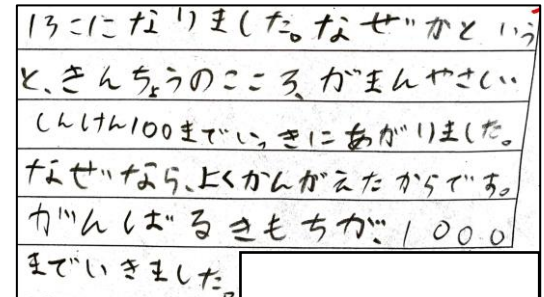 13こになりました。なぜかという
と、きんちょうのこころ、がまんやさしい
しんけん100までいっきにあがりました。
なぜなら、よくかんがえたからです。
がんばるきもちが、1000
までいきました。